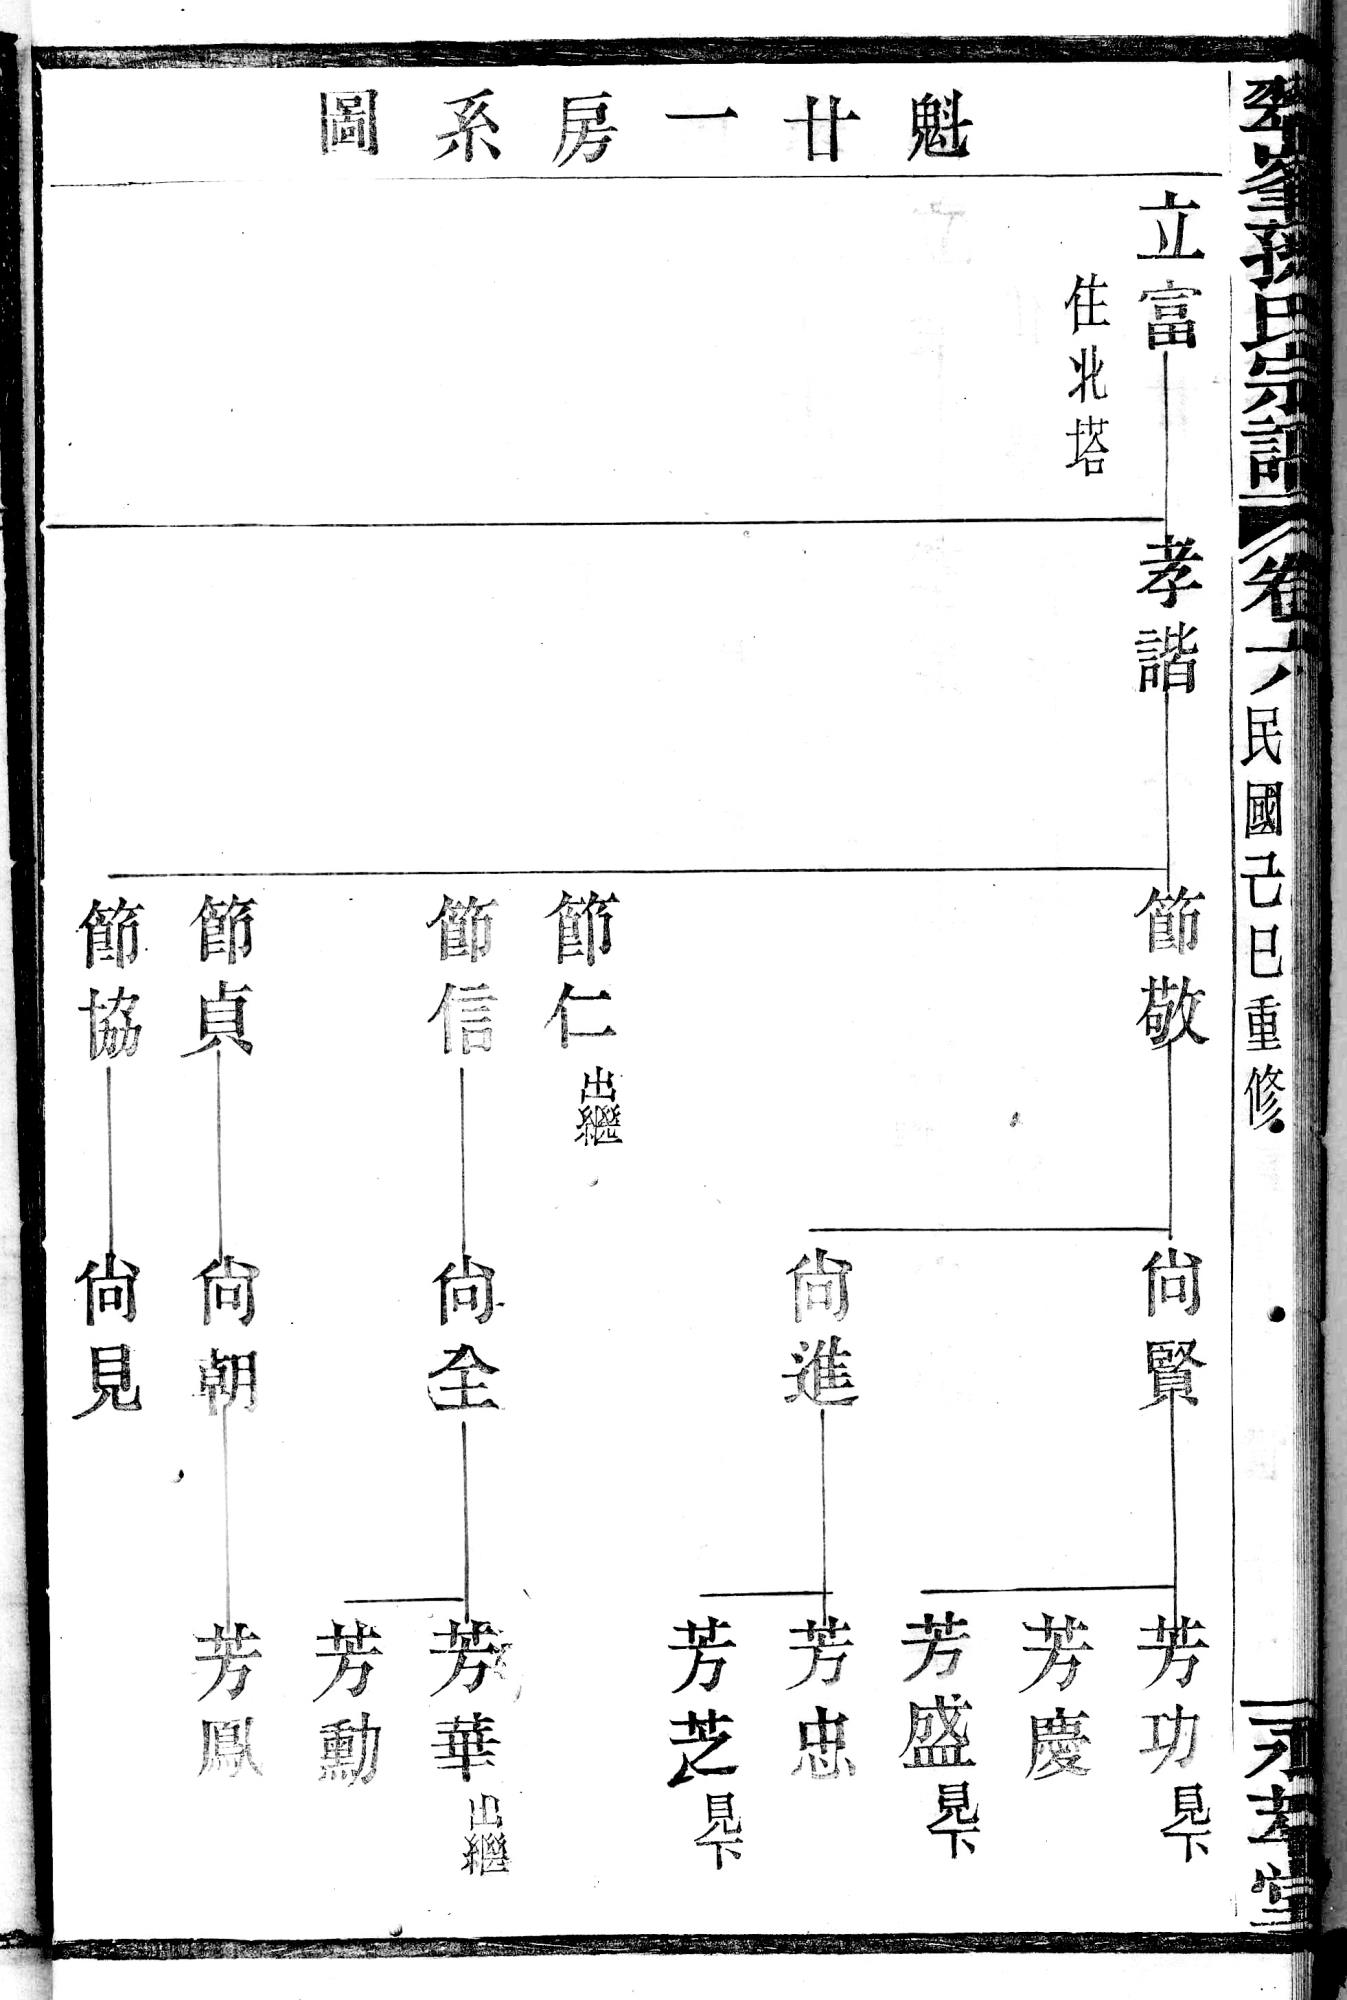 魁廿一房系圖
立富
住北塔
孝諧
節敬
節仁
出繼
節信
節貞
節協
尙賢
尙進
尙全
尙朝
尙見
芳功
見下
芳慶
芳盛
見下
芳忠
芳芝
見下
芳華
出繼
芳勳
芳鳳
峯孫氏宗譜
卷六
民國己巳重修
永孝堂